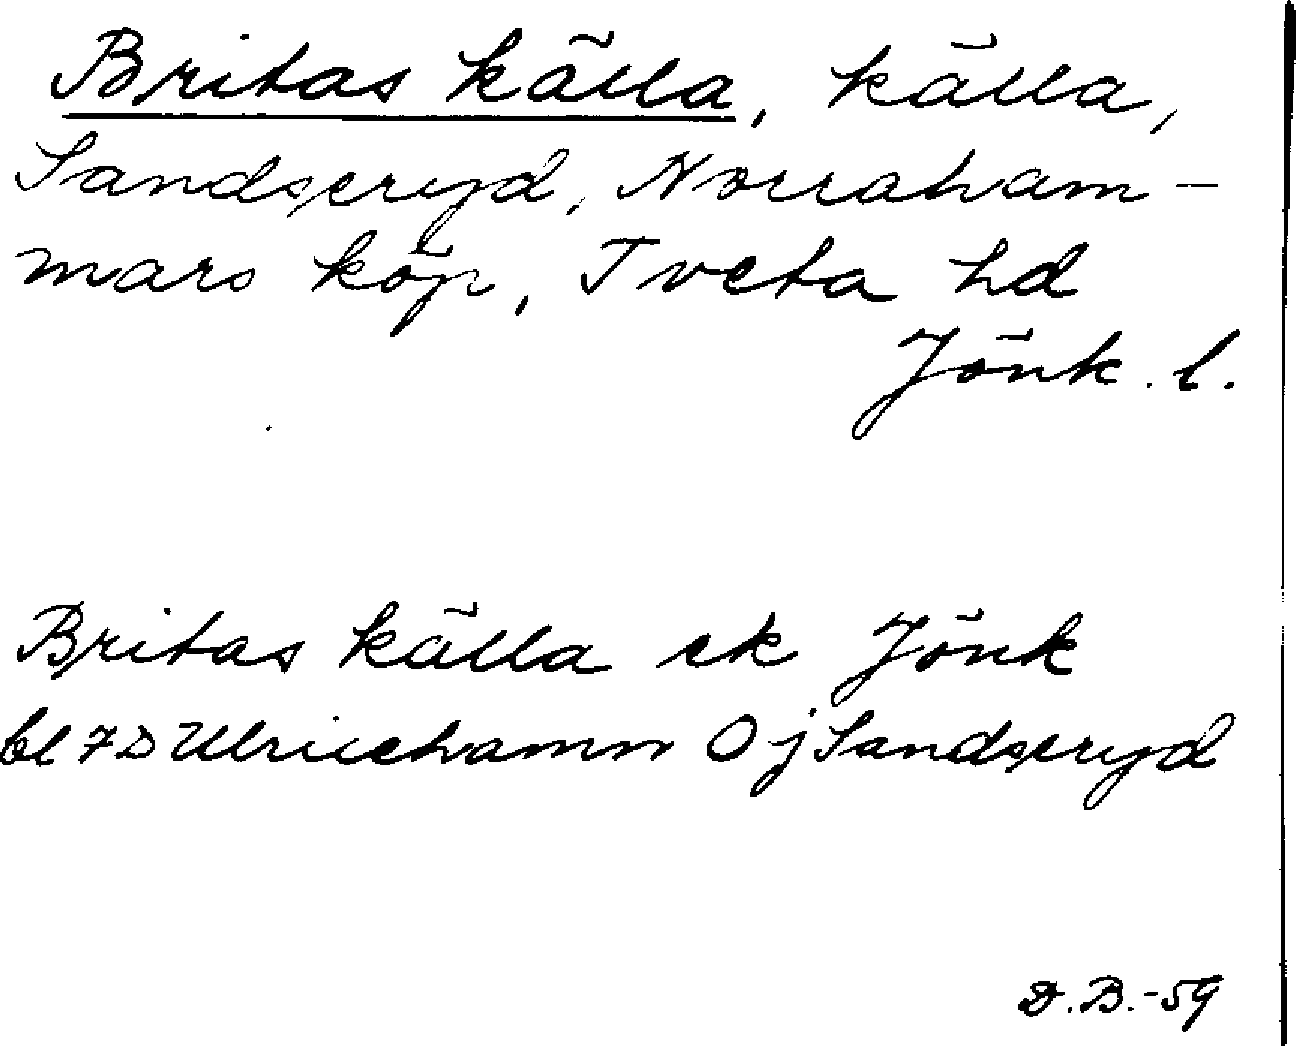 Britas källa, källa,
Sandseryd, Norraham-
mars köp, Tveta hd
Jönk. l.
Britas källa ek Jönk
bl 7D Ulricehamn O j Sandseryd
D.B.-59